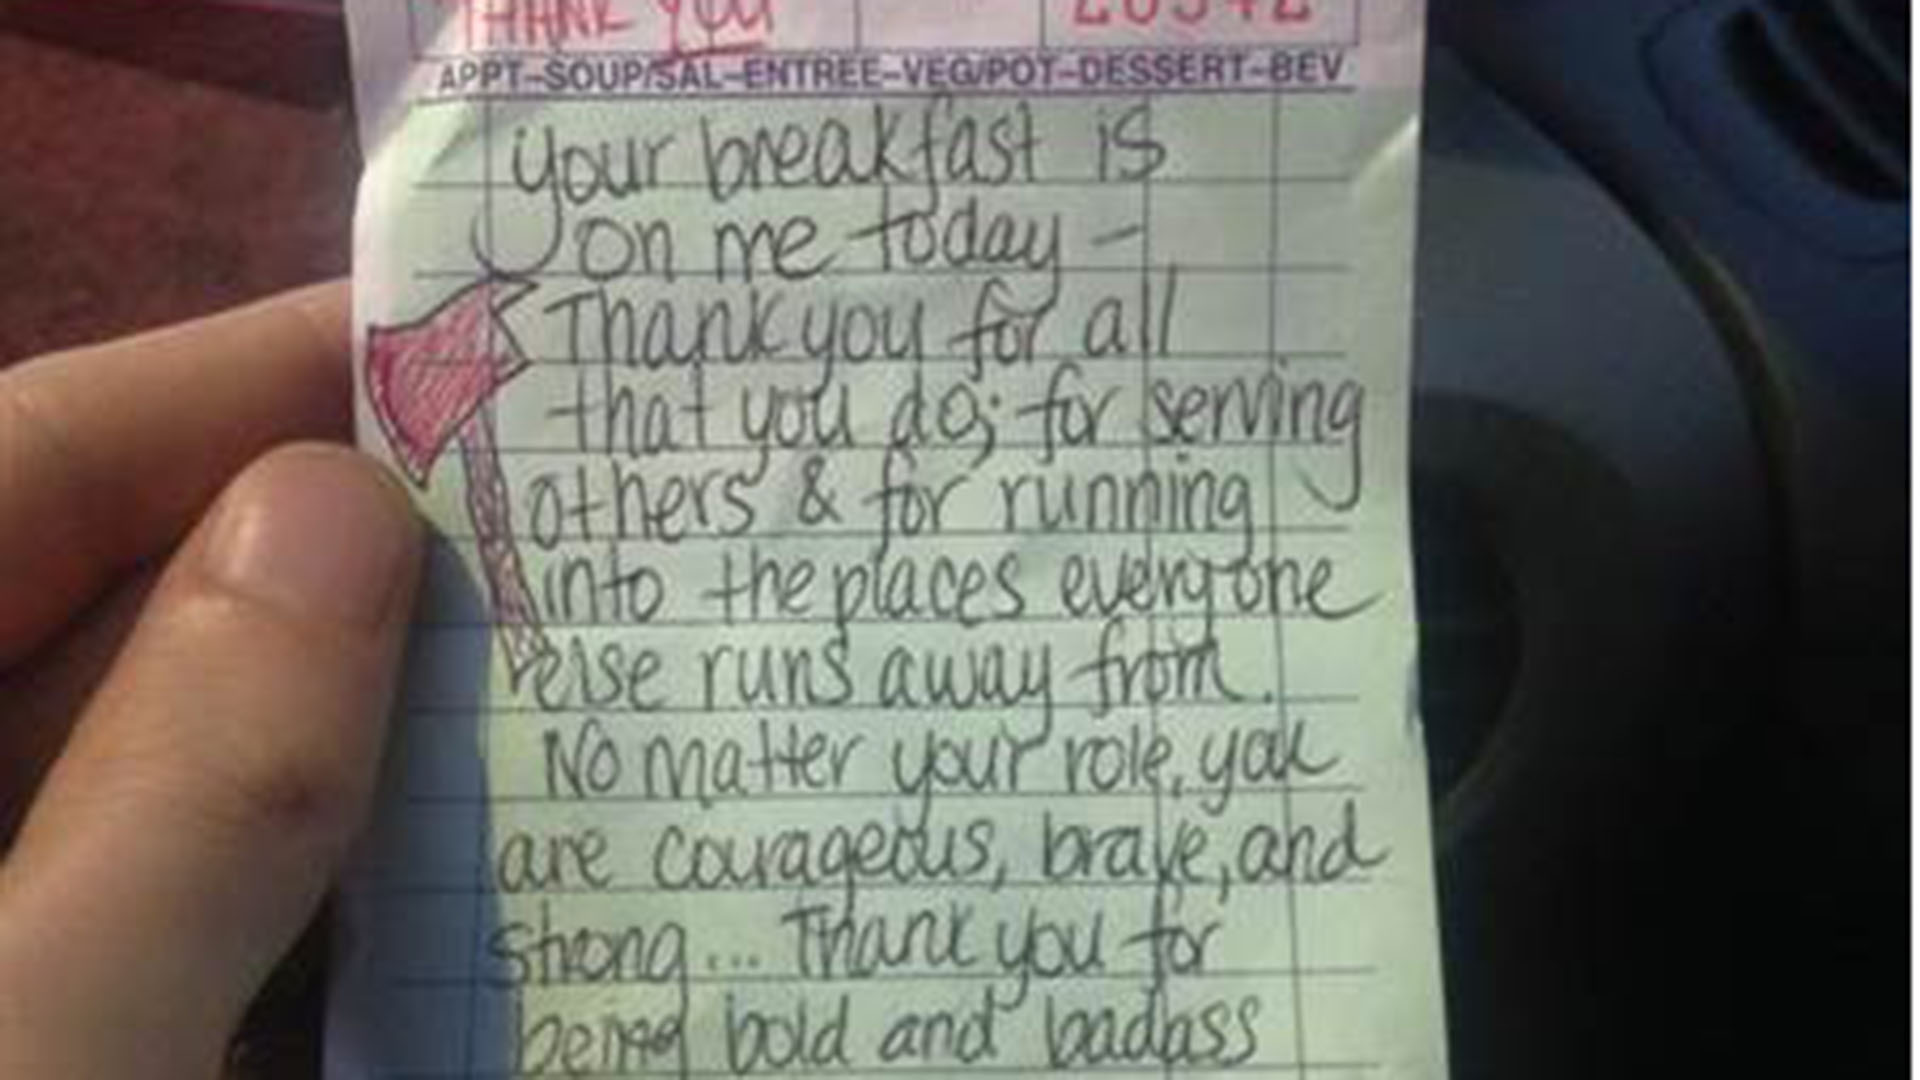 THANK YOU
APPT-SOUP/SAL-ENTREE-VEG/POT-DESSERT-BEV
Your breakfast is
on me today -
Thank you for all
that you do; for serving
others & for running
into the places everyone
else runs away from.
No matter your role, you
are courageous, brave, and
strong... Thank you for
being bold and badass